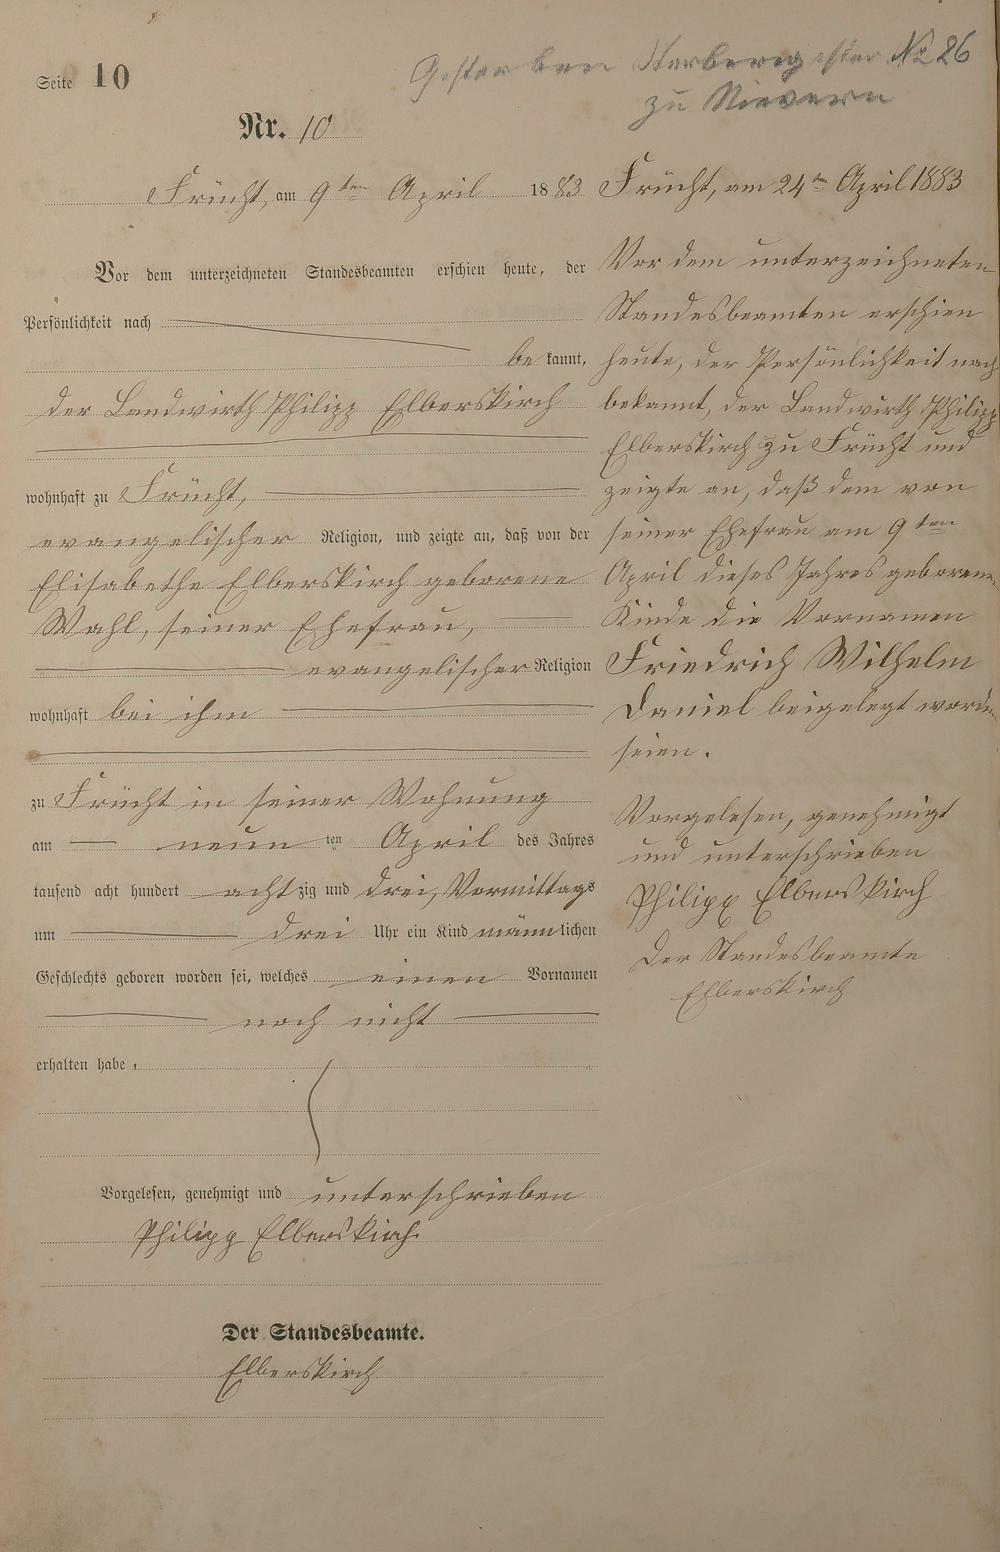 Seite 10
Gestorben Sterberegister No 26
zu Nievern
Nr. 10
Frücht, am 9ten April 1883
Vor dem unterzeichneten Standesbeamten erschien heute, der
Persönlichkeit nach
bekannt,
der Landwirth Philipp Elberskirch
wohnhaft zu Frücht,
evangelischer Religion, und zeigte an, daß von der
Elisabethe Elberskirch geborene
Wahl, seiner Ehefrau,
evangelischer Religion
wohnhaft bei ihm
zu Frücht in seiner Wohnung
am neun ten April des Jahres
tausend acht hundert achtzig und drei, Vormittags
um drei Uhr ein Kind männlichen
Geschlechts geboren worden sei, welches einen Vornamen
noch nicht
erhalten habe.
Vorgelesen, genehmigt und unterschrieben
Philipp Elberskirch
Der Standesbeamte.
Elberskirch
Frücht, am 24ten April 1883
Vor dem unterzeichneten
Standesbeamten erschien
heute, der Persönlichkeit nach
bekannt, der Landwirth Philipp
Elberskirch zu Frücht und
zeigte an, daß dem von
seiner Ehefrau am 9ten
April dieses Jahres geborenen
Kinde die Vornamen
Friedrich Wilhelm
Daniel beigelegt worden
seien.
Vorgelesen, genehmigt
und unterschrieben
Philipp Elberskirch
Der Standesbeamte
Elberskirch